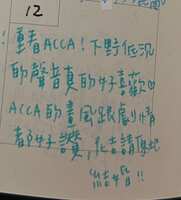 12
重看ACCA!下野低沉
的聲音真的好喜歡♡
ACCA的畫風跟劇情
都好讚,在這請原地
結婚!!